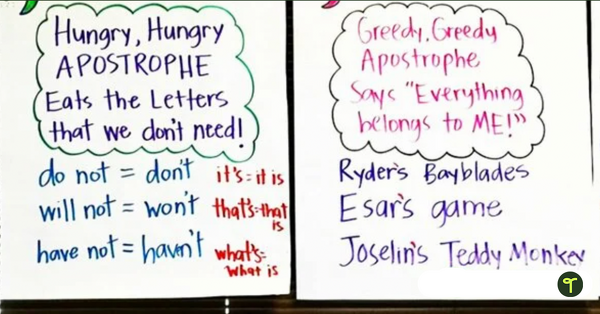 Hungry, Hungry
APOSTROPHE
Eats the Letters
that we don't need!
do not = don't
will not = won't
have not = havn't
it's = it is
that's = that
is
what's =
what is
Greedy, Greedy
Apostrophe
Says "Everything
belongs to ME!"
Ryder's Bayblades
Esar's game
Joselin's Teddy Monkey